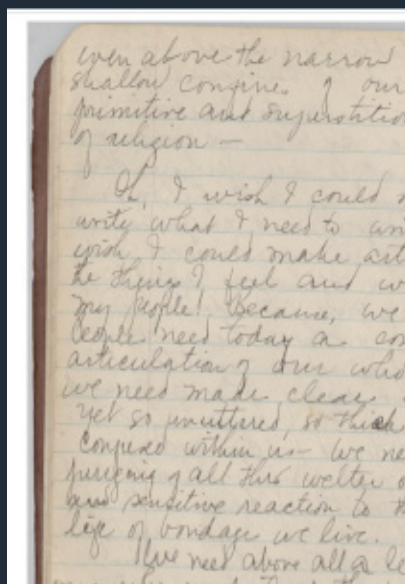 even above the narrow
shallow confines of our
primitive and superstitio
of religion —
Oh, I wish I could
write what I need to
wish I could make
the things I feel and
my people! Because, we
people need today a
articulation of our
we need made clear
yet so unuttered, so thick
confused within us — we ne
purging of all this welter
and sensitive reaction to
life of bondage we live.
We need above all a